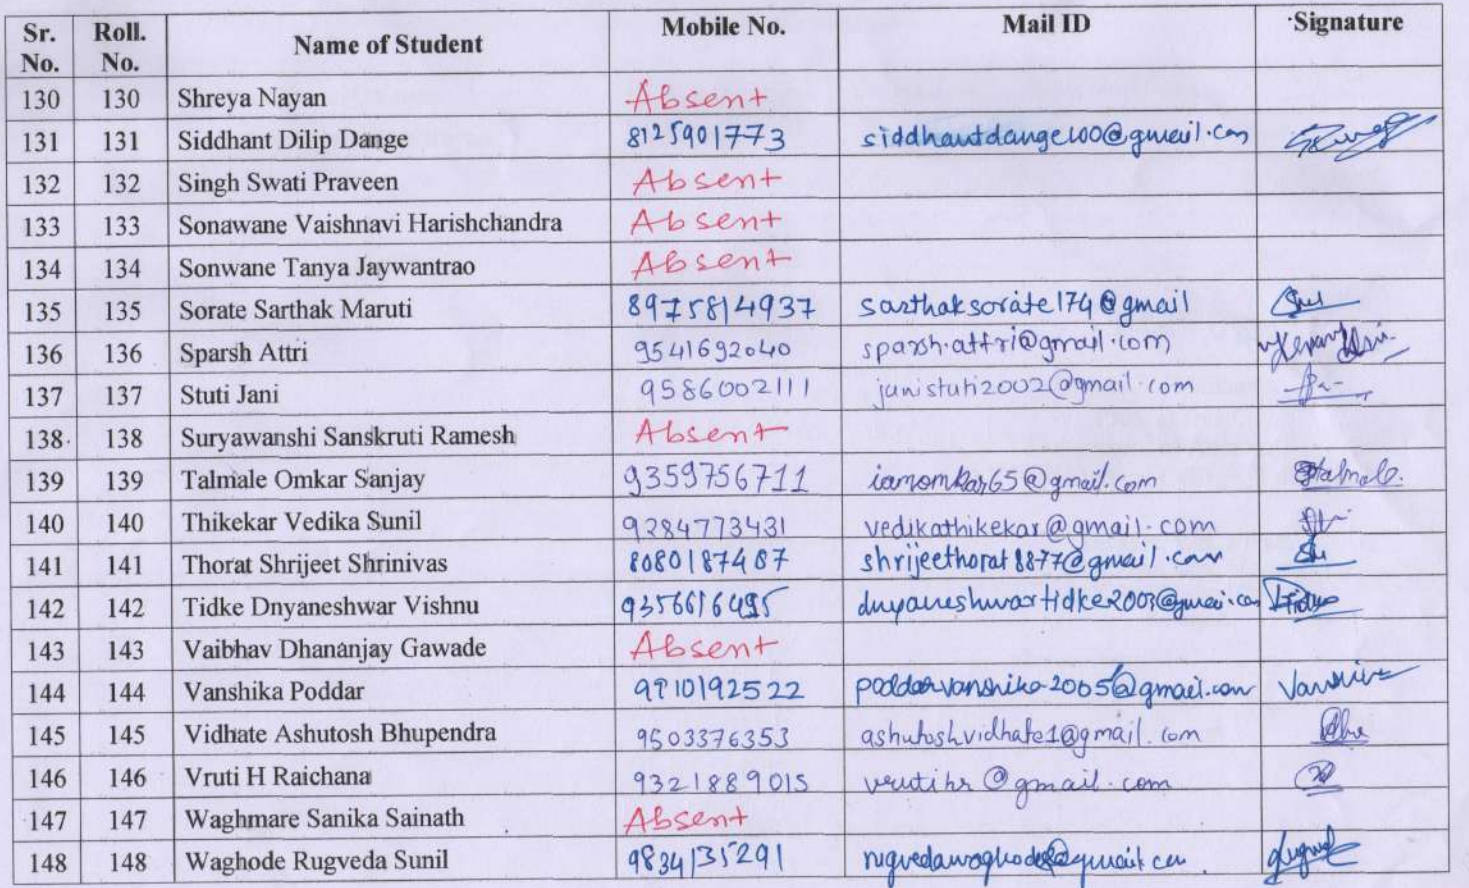 Sr. No. Roll. No. Name of Student Mobile No. Mail ID Signature
130 130 Shreya Nayan Absent
131 131 Siddhant Dilip Dange 8125901773 siddhantdange100@gmail.com
132 132 Singh Swati Praveen Absent
133 133 Sonawane Vaishnavi Harishchandra Absent
134 134 Sonwane Tanya Jaywantrao Absent
135 135 Sorate Sarthak Maruti 8975814937 sarthaksorate174@gmail
136 136 Sparsh Attri 9541692040 sparsh.attri@gmail.com
137 137 Stuti Jani 9586002111 janistuti2002@gmail.com
138 138 Suryawanshi Sanskruti Ramesh Absent
139 139 Talmale Omkar Sanjay 9359756711 iamomkar65@gmail.com
140 140 Thikekar Vedika Sunil 9284773431 vedikathikekar@gmail.com
141 141 Thorat Shrijeet Shrinivas 8080187487 shrijeethorat8877@gmail.com
142 142 Tidke Dnyaneshwar Vishnu 9356616495 dnyaneshwartidke2003@gmail.com
143 143 Vaibhav Dhananjay Gawade Absent
144 144 Vanshika Poddar 9910192522 poddarvanshika2005@gmail.com
145 145 Vidhate Ashutosh Bhupendra 9503376353 ashutoshvidhate1@gmail.com
146 146 Vruti H Raichana 9321889015 vrutihr@gmail.com
147 147 Waghmare Sanika Sainath Absent
148 148 Waghode Rugveda Sunil 9834135291